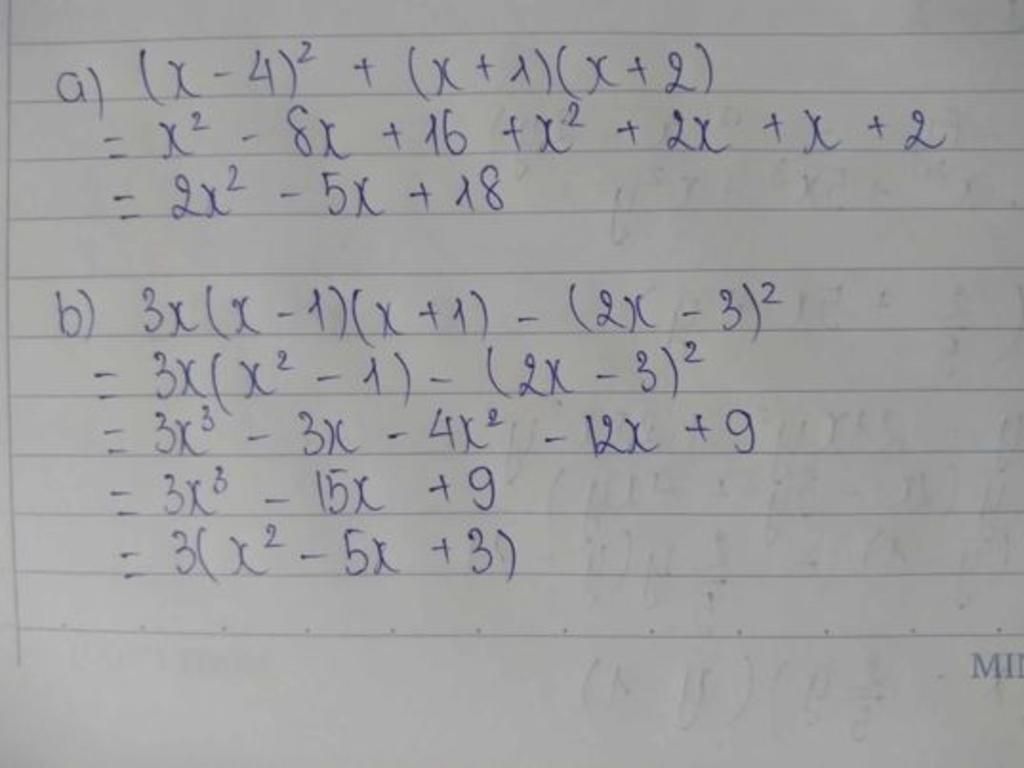 a) (x - 4)² + (x + 1)(x + 2)
= x² - 8x + 16 + x² + 2x + x + 2
= 2x² - 5x + 18
b) 3x(x - 1)(x + 1) - (2x - 3)²
= 3x(x² - 1) - (2x - 3)²
= 3x³ - 3x - 4x² - 12x + 9
= 3x³ - 15x + 9
= 3(x² - 5x + 3)